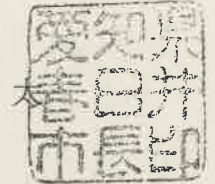 愛知県
春日井
市長印